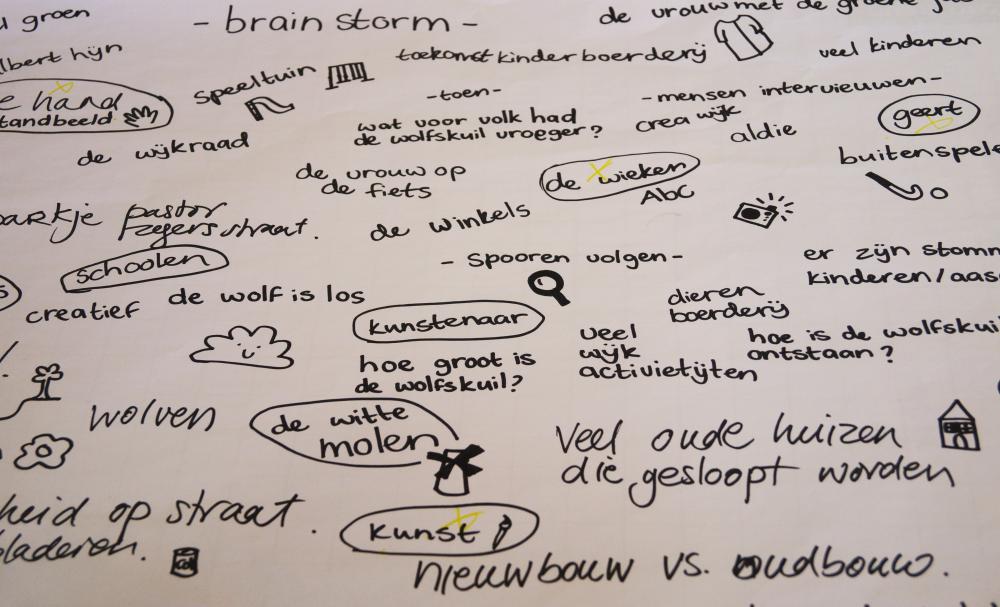 groen
- brain storm -
de vrouw met de groene
lbert hijn
speeltuin
toekomst kinderboerderij
veel kinderen
e hand
tandbeeld
- toen -
wat voor volk had
de wolfskuil vroeger?
- mensen interviewen -
crea wijk
aldie
geert
de wijkraad
de vrouw op
de fiets
de wieken
Abc
buitenspele
arkje pastor
zegersstraat.
de winkels
schoolen
- Spooren volgen -
er zijn stomm
kinderen/aas
s
creatief
de wolf is los
kunstenaar
dieren
boerderij
veel
wijk
activietijten
hoe is de wolfskui
ontstaan?
hoe groot is
de wolfskuil?
wolven
de witte
molen
veel oude huizen
die gesloopt worden
heid op straat.
bladeren.
kunst
nieuwbouw vs. oudbouw.